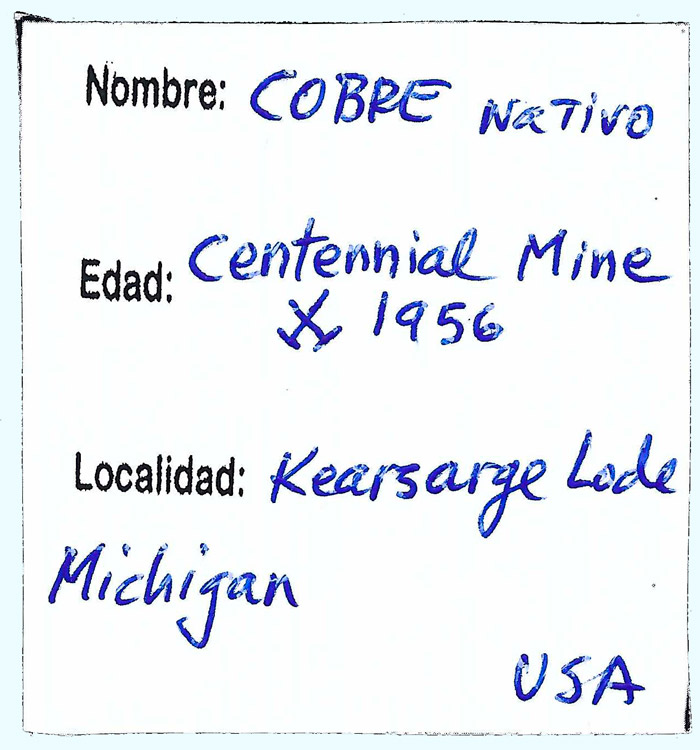 Nombre: COBRE NaTivo
Edad: Centennial Mine
⚒ 1956
Localidad: Kearsarge Lode
Michigan
USA